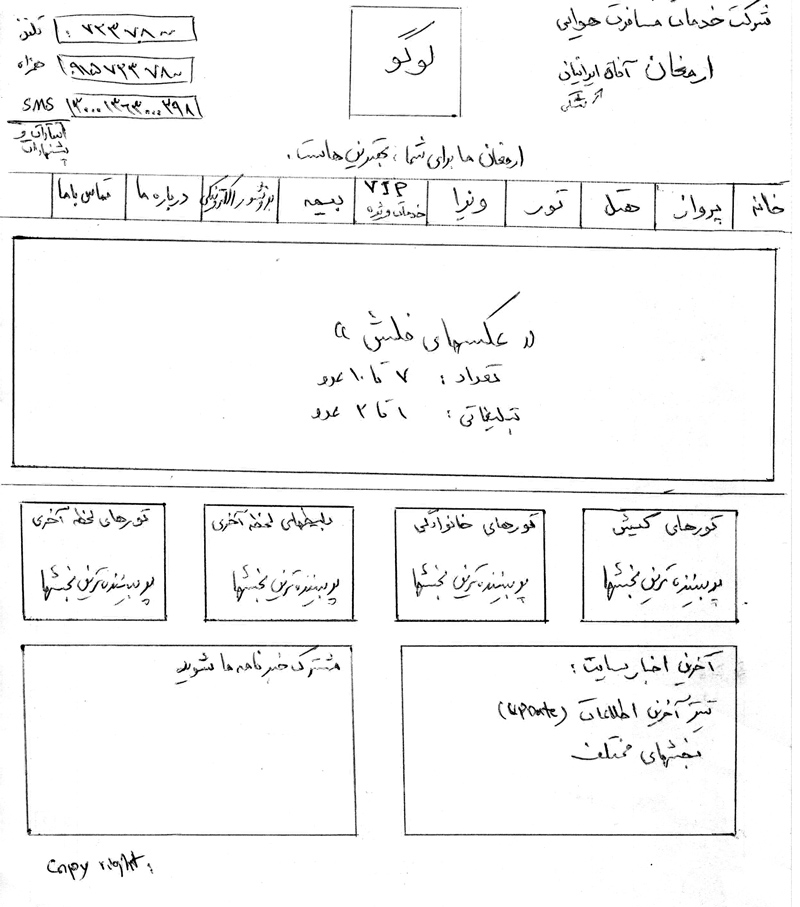 شرکت خدمات مسافرت هوایی
ارمغان آفاق ایرانیان
لوگو
تلفن: ۷۲۳۷۸۰۰
همراه ۰۹۱۵۷۲۳۷۸۰۰
SMS ۳۰۰۰۱۳۶۳۰۰۰۲۹۸
انتقادات و
پیشنهادات
ارمغان ما برای شما، بهترین هاست.
خانه
پرواز
هتل
تور
ویزا
VIP
خدمات ویژه
بیمه
بروشور الکترونیکی
درباره ما
تماس باما
« عکسهای فلش »
تعداد: ۷ تا ۱۰ عدد
تبلیغاتی: ۱ تا ۲ عدد
تورهای کیش
پر بیننده ترین بخشها
تورهای خانوادگی
پر بیننده ترین بخشها
بلیطهای لحظه آخری
پر بیننده ترین بخشها
تورهای لحظه آخری
پر بیننده ترین بخشها
آخرین اخبار سایت:
تیتر آخرین اطلاعات (UPDate)
بخشهای مختلف
مشترک خبرنامه ما شوید
Copy right: